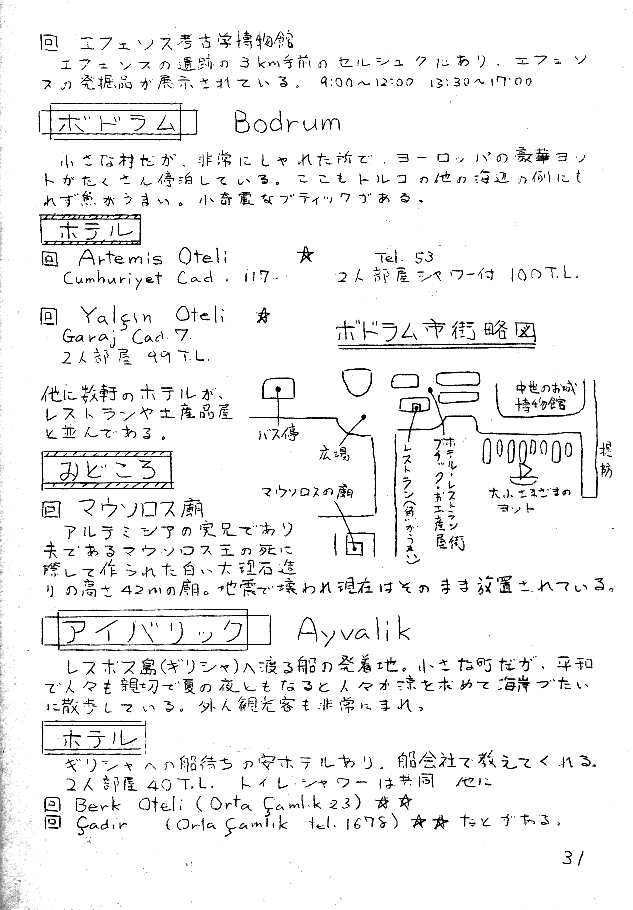 回 エフェソス考古学博物館
エフェソスの遺跡の3km手前のセルシュクにあり、エフェソ
スの発掘品が展示されている。 9:00〜12:00 13:30〜17:00
ボドラム Bodrum
小さな村だが、非常にしゃれた所で、ヨーロッパの豪華ヨッ
トがたくさん停泊している。ここもトルコの他の海辺の例にも
れず魚がうまい。小奇麗なブティックがある。
ホテル
回 Artemis Oteli ☆ Tel. 53
Cumhuriyet Cad. 117. 2人部屋シャワー付 100T.L.
回 Yalçın Oteli ☆
Garaj Cad. 7.
2人部屋 99T.L.
ボドラム市街略図
他に数軒のホテルが、
レストランや土産品屋
と並んである。
バス停
広場
マウソロスの廟
レストラン(魚がうまい)
ホテル・レストラン街
ブティック・お土産屋
中世のお城
博物館
大小さまざまの
ヨット
堤防
みどころ
回 マウソロス廟
アルテミシアの実兄であり
夫であるマウソロス王の死に
際して作られた白い大理石造
りの高さ42mの廟。地震で壊われ現在はそのまま放置されている。
アイバリック Ayvalik
レスボス島(ギリシャ)へ渡る船の発着地。小さな町だが、平和
で人々も親切で夏の夜ともなると人々が涼を求めて海岸づたい
に散歩している。外人観光客も非常にまれ。
ホテル
ギリシャへの船待ちの安ホテルあり、船会社で教えてくれる。
2人部屋40T.L. トイレ・シャワーは共同 他に
回 Berk Oteli (Orta Çamlik 23) ☆☆
回 Çadir (Orta Çamlik tel. 1678) ☆☆ などがある。
31